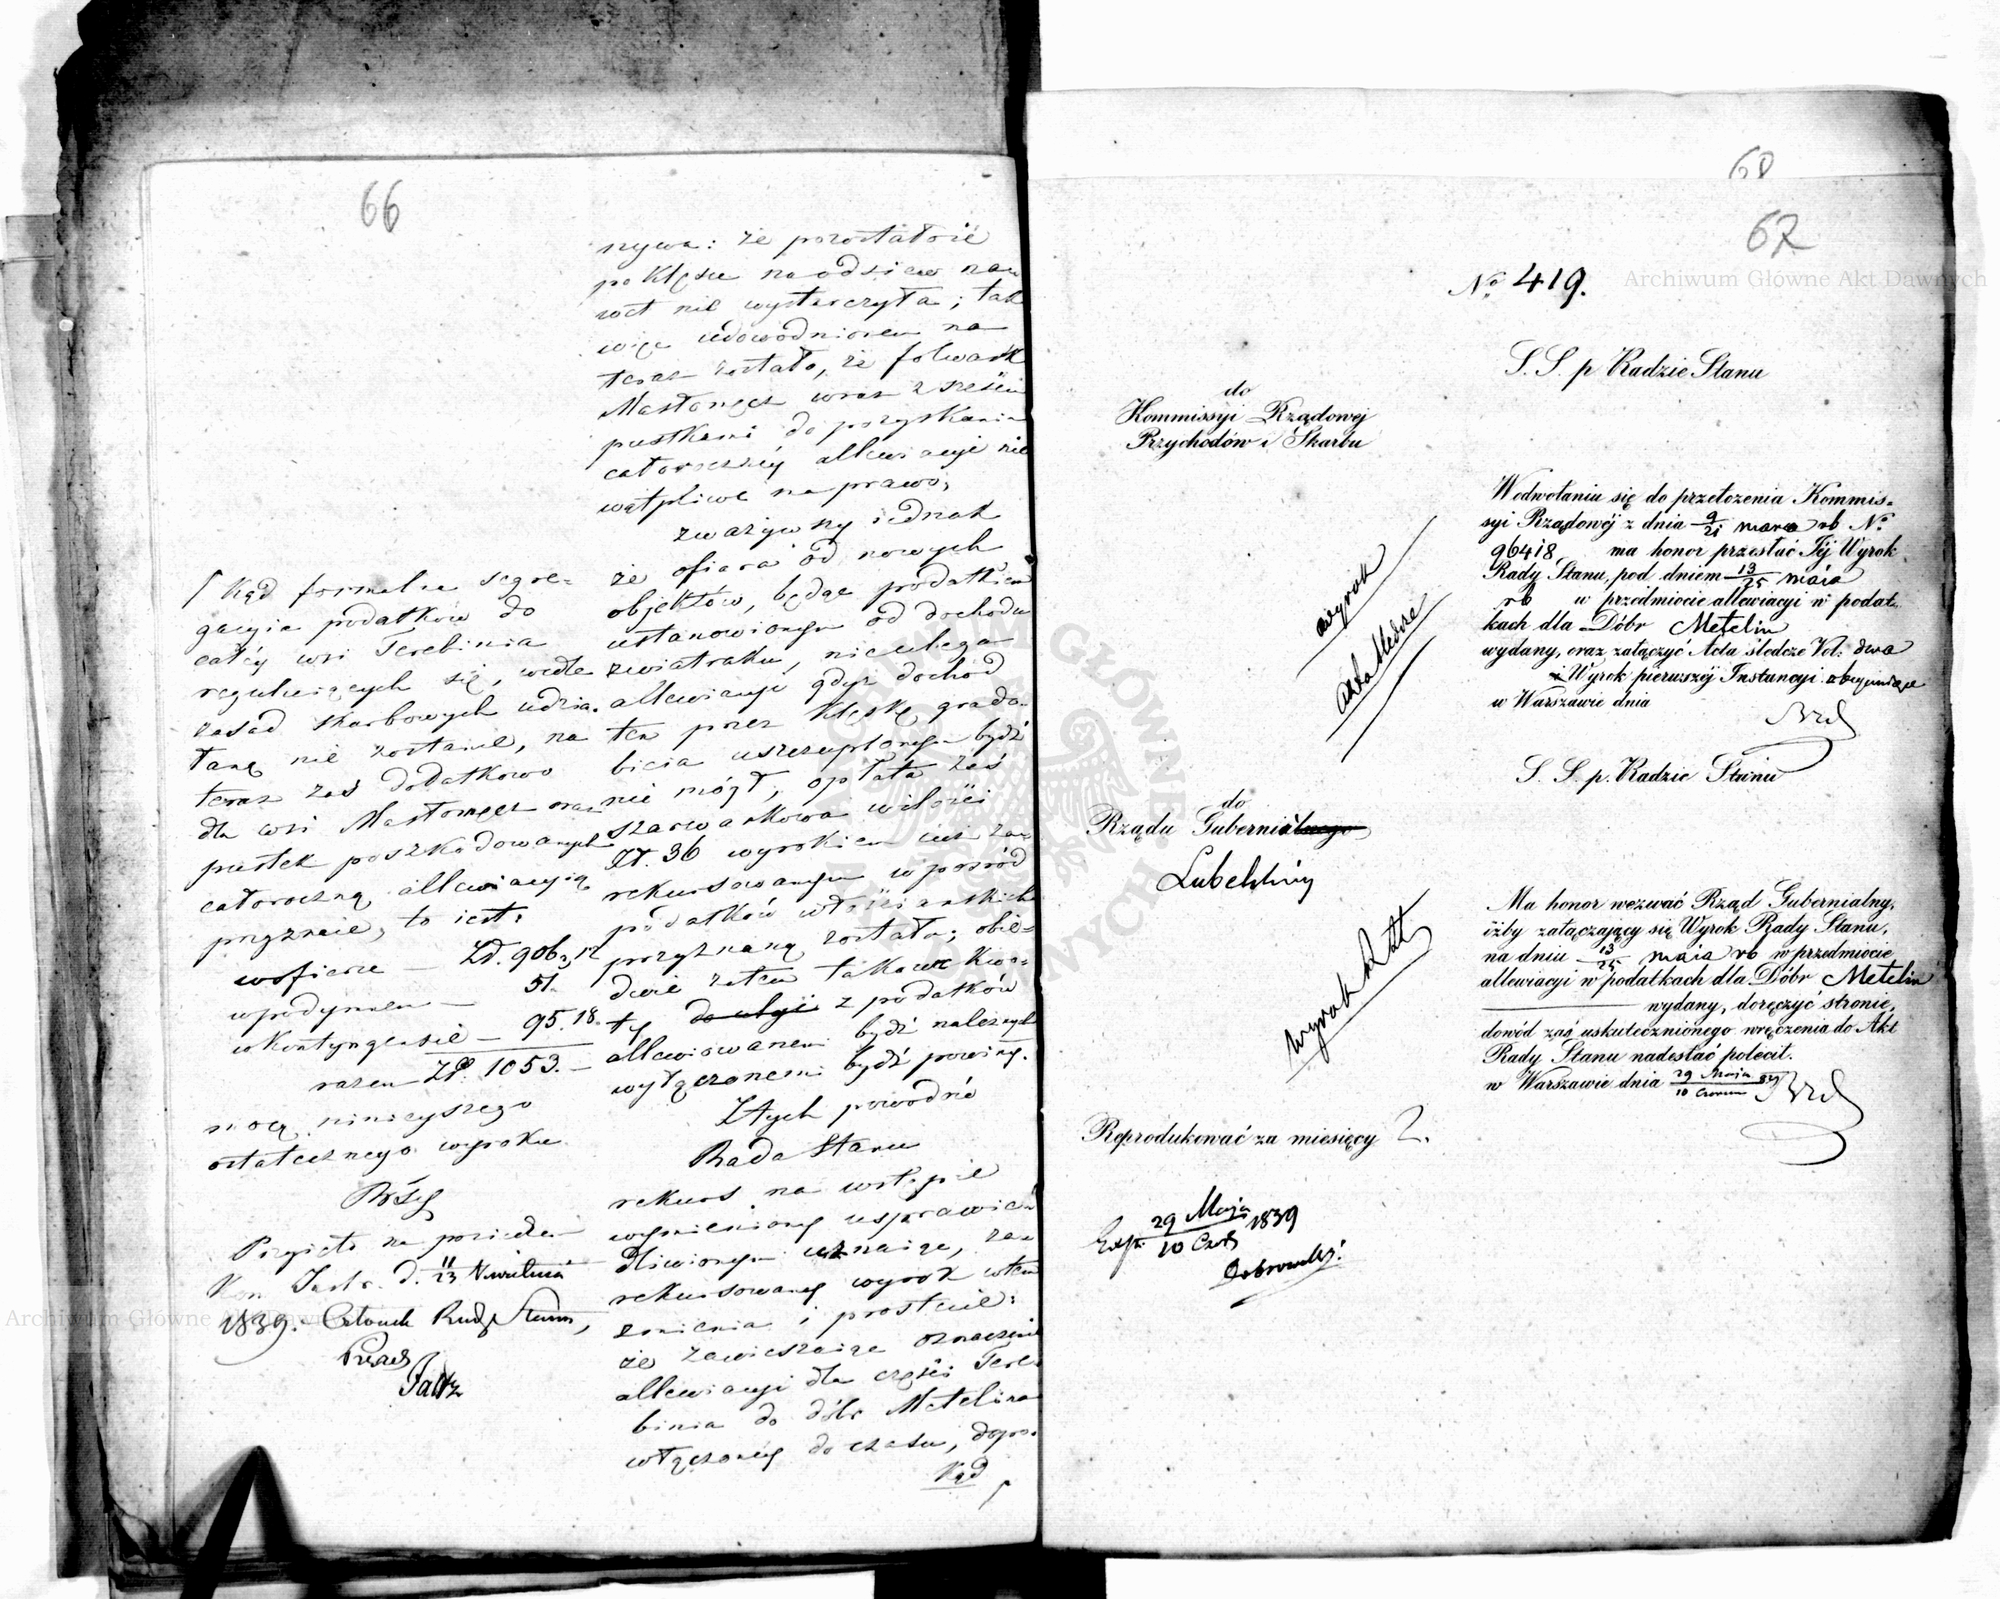 66
nywa: że pozostałość
po klęsce na odsiew na-
wet nie wystarczyła; tak
więc udowodnionem na
teraz zostało, że folwark
Masłomęcz wraz z sześcią
pustkami do pozyskania
całorocznéy allewiacyi nie
wątpliwe ma prawo,
zważywszy iednak
że ofiara od nowych
objektów, będąc podatkiem
ustanowionym od dochodu
z wiatraku, nieulega
allewiacyi gdyż dochód
ten przez klęskę grado-
bicia uszczuplonym bydź
nie mógł, opłata zaś
szarwarkowa w ilości
Zł. 36 wyrokiem iuż za-
rekursowanym w pośród
podatków włościańskich
przyznaną została; obie-
dwie zatem takowe kwo-
ty do ulgi z podatków
allewiowanemi bydź należnych
wyłączonemi bydź powinny.
Z tych powodów
Rada Stanu
rekurs na wstępie
wymieniony usprawie-
dliwionym uznaiąc, za-
rekursowany wyrok w tem
zmienia i prostuie:
że zawieszaiąc oznaczenie
allewiacyi dla części Tere-
binia do dóbr Metelina
włączonéy do czasu, dopó-
kąd
/ kąd formalna segre-
gacyia podatków do
całéy wsi Terebinia
reguluiących się, wedle
zasad skarbowych udzia-
łaną nie zostanie, na
teraz zaś dodatkowo
dla wsi Masłomęcz oraz
pustek poszkodowanych
całoroczną allewiacyią
przyznaie, to iest:
w ofierze — Zł. 906, 12
w podymnem — 51.
w kontyngensie — 95.18.
razem Zł. 1053. —
mocą ninieyszego
ostatecznego wyroku
Przyięto na posiedze-
Kom. Instr. d. 11/23 Kwietnia
1839. Członek Rady Stanu,
Prezes
68
67
No 419.
S. S. p Radzie Stanu
do
Kommissyi Rządowej
Przychodów i Skarbu
W odwołaniu się do przełożenia Kommis-
syi Rządowéj z dnia 9/21 marca rb No
96418 ma honor przesłać Jéj Wyrok
Rady Stanu, pod dniem 13/25 maia
rb w przedmiocie allewiacyi w podat-
kach dla Dóbr Metelin
wydany, oraz załączyć Acta śledcze Vol: dwa
i Wyrok pierwszéj Instancyi obejmujące
w Warszawie dnia
wyrok
akta śledcze
S. S. p. Radzie Stanu
do
Rządu Gubernialnego
Lubelskiey
Ma honor wezwać Rząd Gubernialny,
iżby załączający się Wyrok Rady Stanu,
na dniu 13/25 maia rb w przedmiocie
allewiacyi w podatkach dla Dóbr Metelin
wydany, doręczyć stronie,
dowód zaś uskutecznionego wręczenia do Akt
Rady Stanu nadesłać polecił.
w Warszawie dnia 29 Maia/10 Czerwca 839
Reprodukować za miesięcy 2.
Exp. 29 Maja/10 Czerw 1839
Dobrowolski
Archiwum Główne Akt Dawnych
Archiwum Główne Akt Dawnych